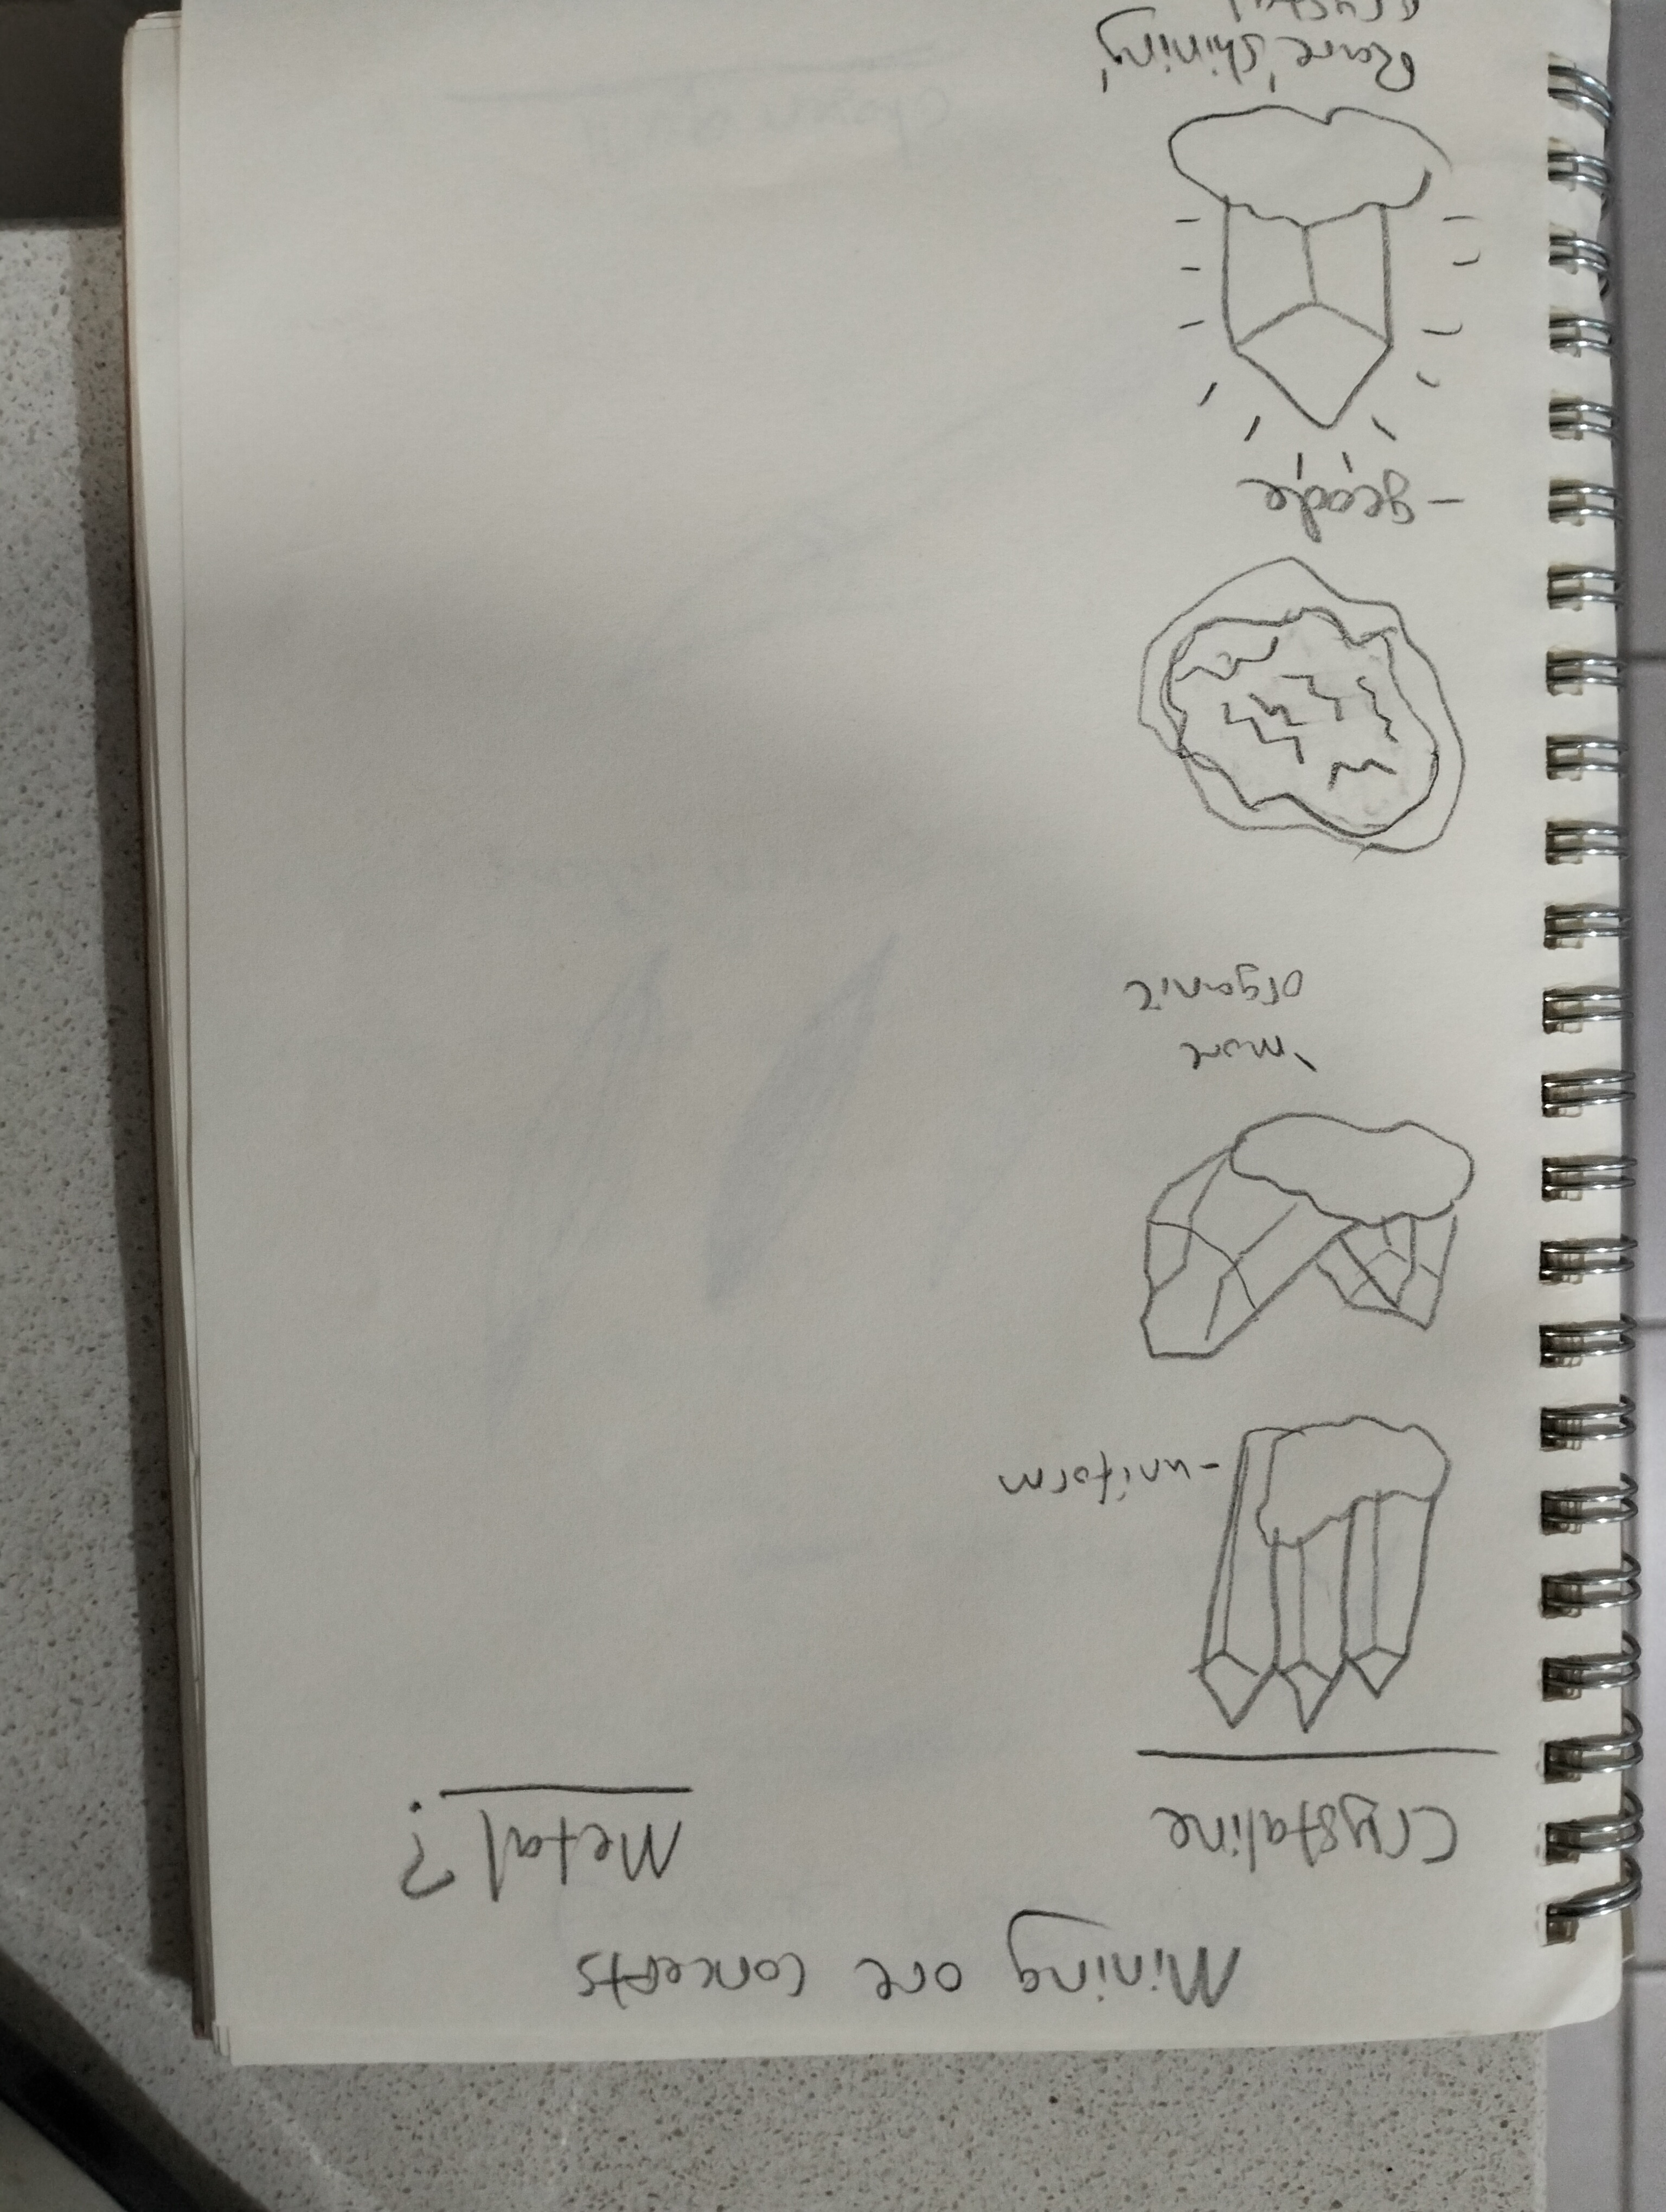 Mining ore concepts
Crystaline
Metal?
-uniform
'more
organic
-geode
Rare 'shining'
crystal